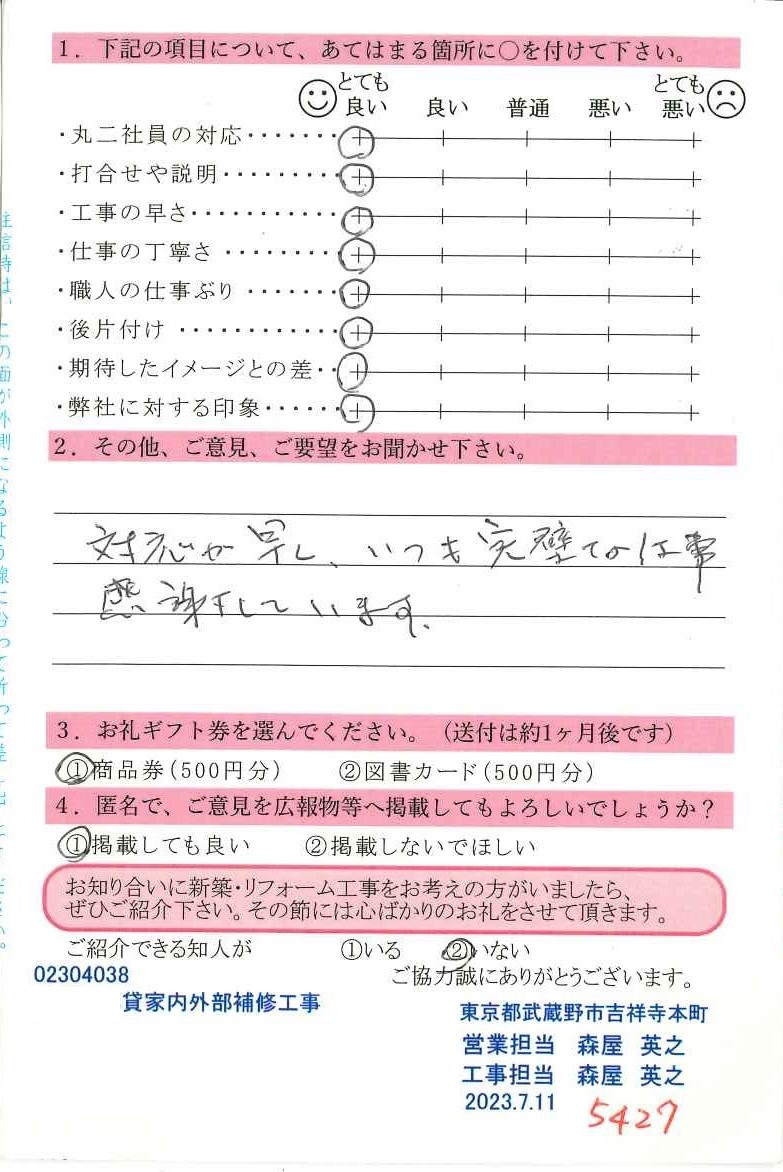 1. 下記の項目について、あてはまる箇所に○を付けて下さい。
とても良い 良い 普通 悪い とても悪い
・丸二社員の対応・・・・・・・
・打合せや説明・・・・・・・・
・工事の早さ・・・・・・・・・・
・仕事の丁寧さ ・・・・・・・・
・職人の仕事ぶり ・・・・・・・
・後片付け ・・・・・・・・・・・
・期待したイメージとの差・・
・弊社に対する印象・・・・・・
2. その他、ご意見、ご要望をお聞かせ下さい。
対応が早し、いつも完璧な仕事
感謝しています。
3. お礼ギフト券を選んでください。（送付は約1ヶ月後です）
①商品券(500円分) ②図書カード(500円分)
4. 匿名で、ご意見を広報物等へ掲載してもよろしいでしょうか?
①掲載しても良い ②掲載しないでほしい
お知り合いに新築・リフォーム工事をお考えの方がいましたら、
ぜひご紹介下さい。その節には心ばかりのお礼をさせて頂きます。
ご紹介できる知人が ①いる ②いない
02304038 ご協力誠にありがとうございます。
貸家内外部補修工事
東京都武蔵野市吉祥寺本町
営業担当 森屋 英之
工事担当 森屋 英之
2023.7.11
5427